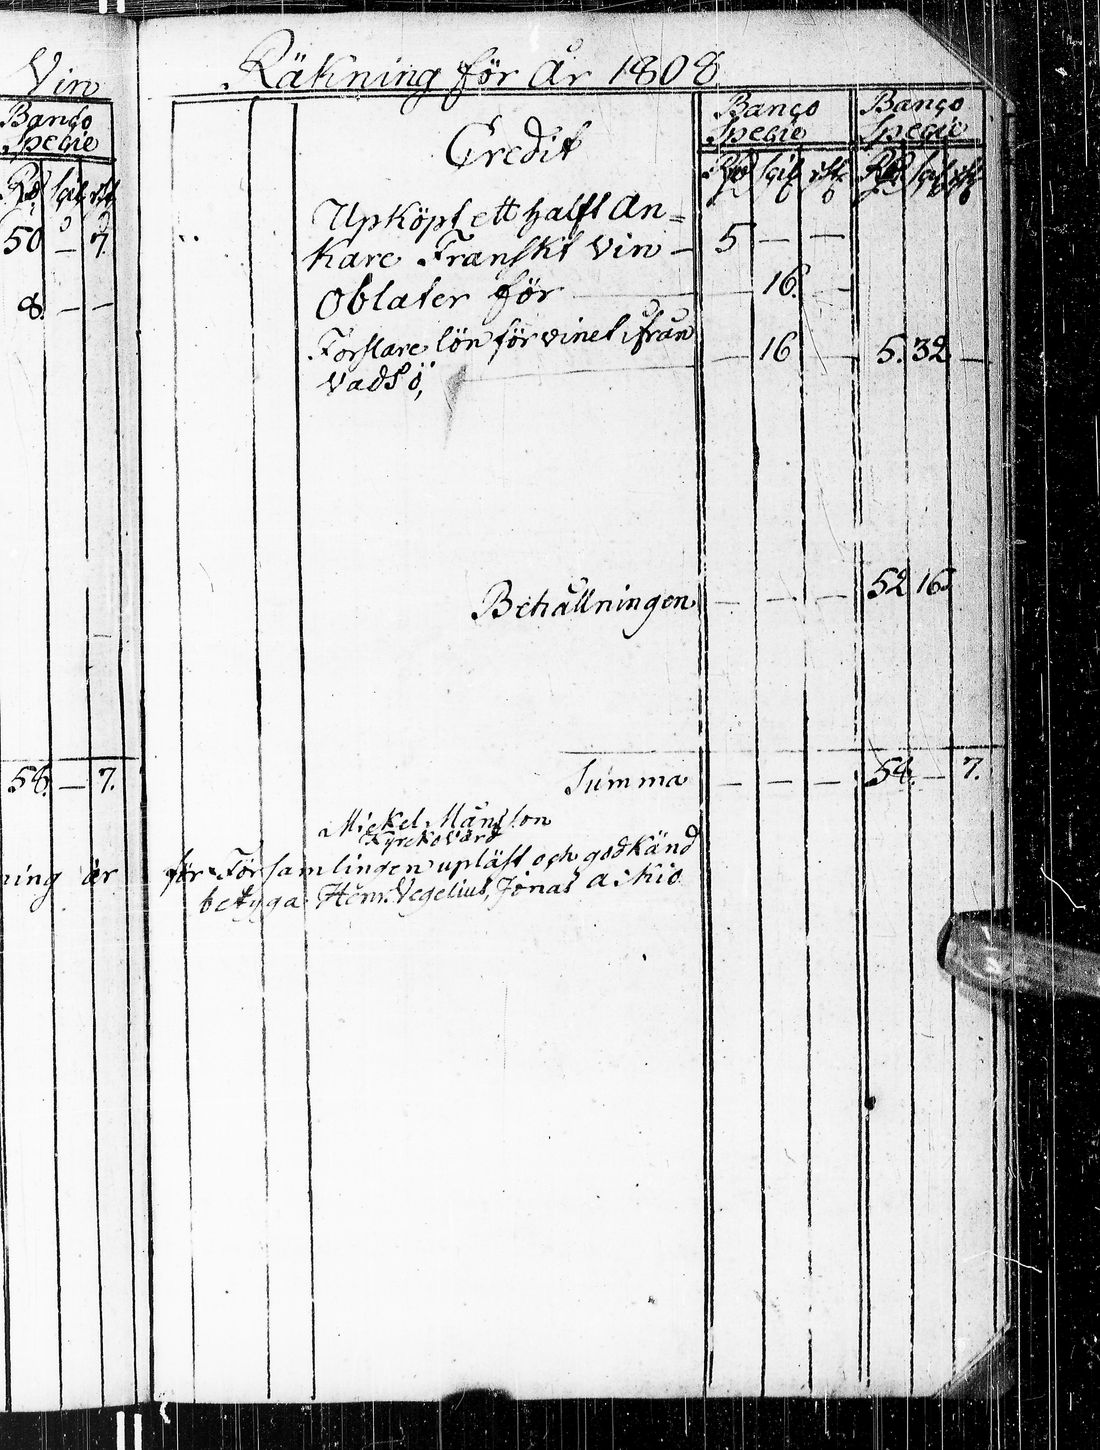 Vin
Banco
Specie
Rd sch rst
50 — 7.
8. — —
58. — 7.
ning är
Räkning för År 1808
Credit
Banco Specie
Banco Specie
Rd sch rst
Rd sch rst
Upköpt ett halft An=
kare Franskt Vin — 5 — —
Oblater för — 16. —
Forslare lön för vinet ifrån — 16 — 5. 32 —
Vadsö,
Behållningen — — — 52 16
Summa — — — 58. — 7.
Mickel Månsson
Kyrckovärd
för Församlingen upläst och godkänd
betyga Henr. Vegelius, Jonas Aikio